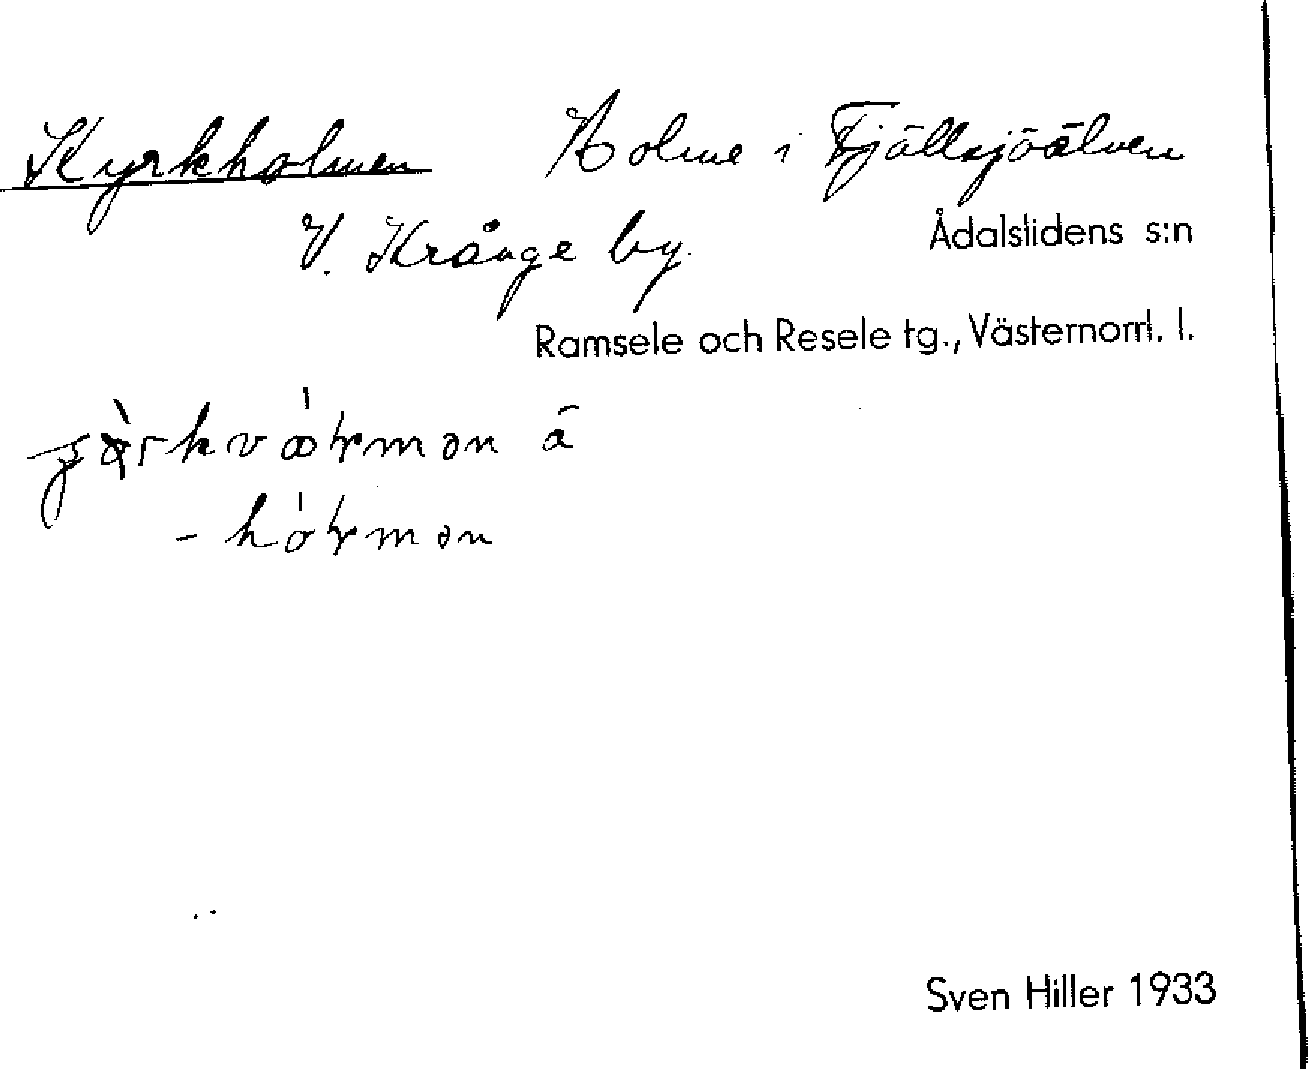 Kyrkholmen Holme i Fjällsjöälven
V. Krånge by. Ådalslidens s:n
Ramsele och Resele tg., Västernorrl. l.
Sven Hiller 1933